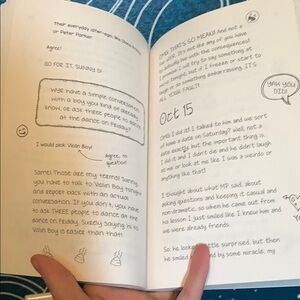 their everyday alter-egos, like
or Peter Parker.
Agree!
GO FOR IT, Sunny b!
WYR: have a simple conversation
with a boy you kind of already
know, OR ask three people to dance
at the dance on Friday?
I would pick Violin Boy!
Agree, no
question!
Same! Those are my terms! Sunny,
you have to talk to Violin Boy tonight
and report back with an actual
conversation. If you don't, you have
to ask THREE people to dance at the
dance on Friday. Surely saying hi to
Violin Boy is easier than that!
OMG! THAT'S SO MEAN! And not a
It's not like any of you have
to actually live with the consequences!
I will try to say something at
tonight, but if I freeze or start to
laugh or do something embarrassing, IT'S
ALL YOUR FAULT!
YAY YOU
DID!
Oct 15
OMG! I did it! I talked to him and we sort
of have a date on Saturday! Well, not a
date exactly, but the important thing is,
I did it and I didn't die and he didn't laugh
at me or look at me like I was a weirdo or
anything like that!
I thought about what MP said, about
asking questions, keeping it casual and
non-dramatic, so when he came out from
his lesson I just smiled like I knew him and
we were already friends.
So, he looked a little surprised, but then
he smiled and by some miracle, my